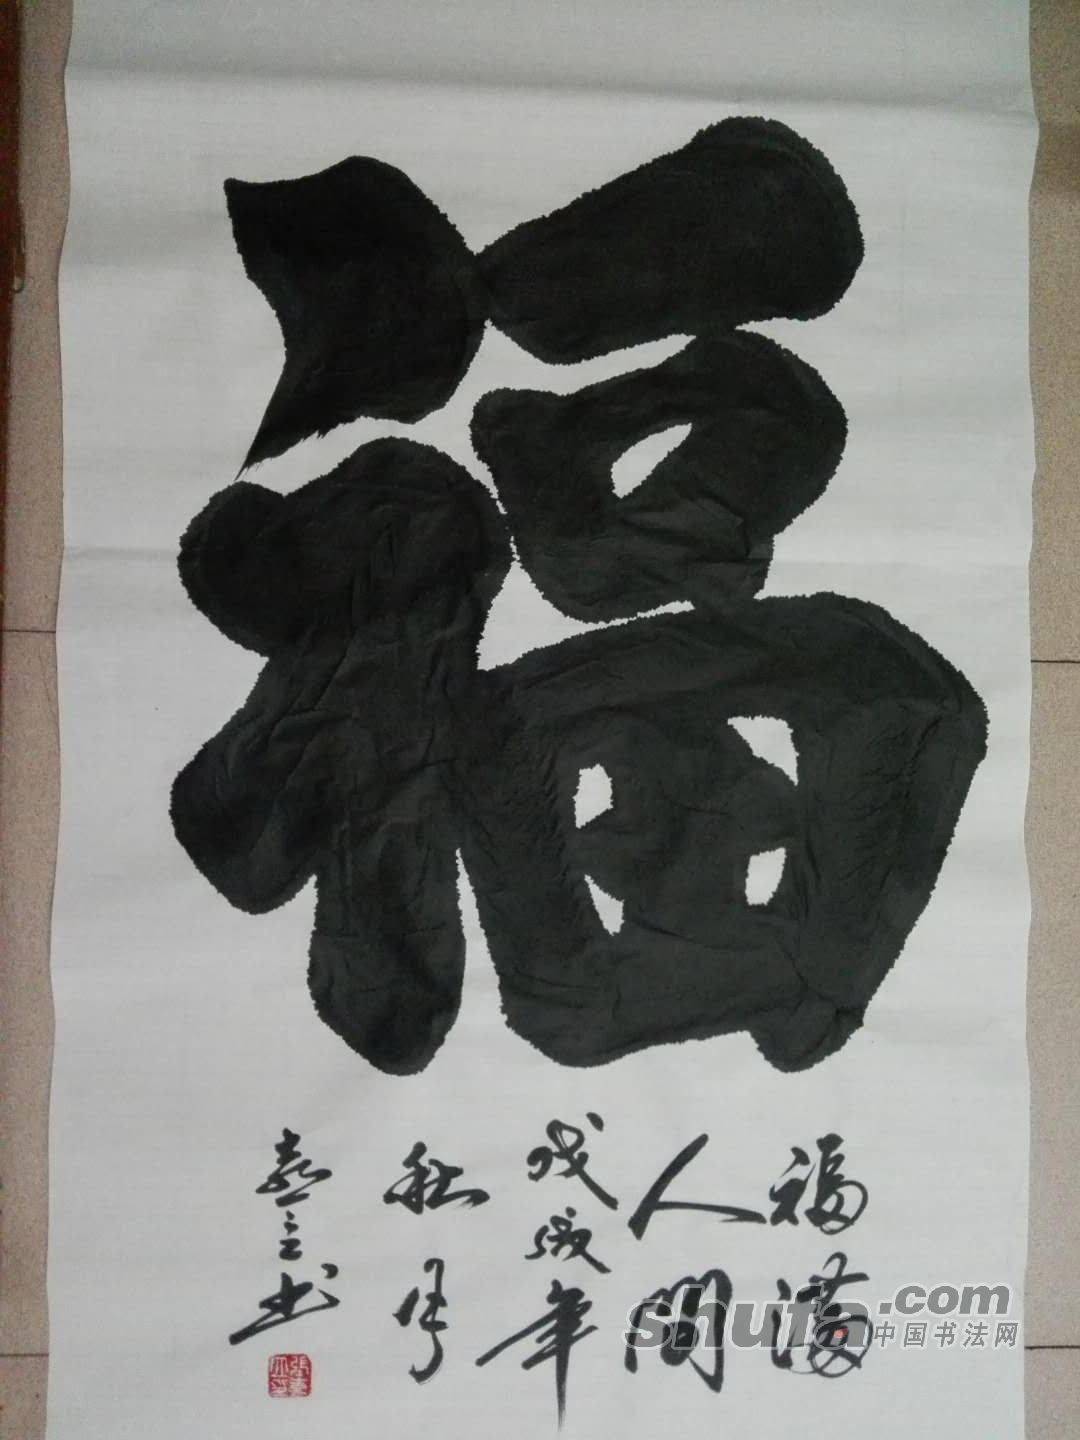 福
福满
人間
戊戌年
秋月
喜立书
shufa.com
中国书法网